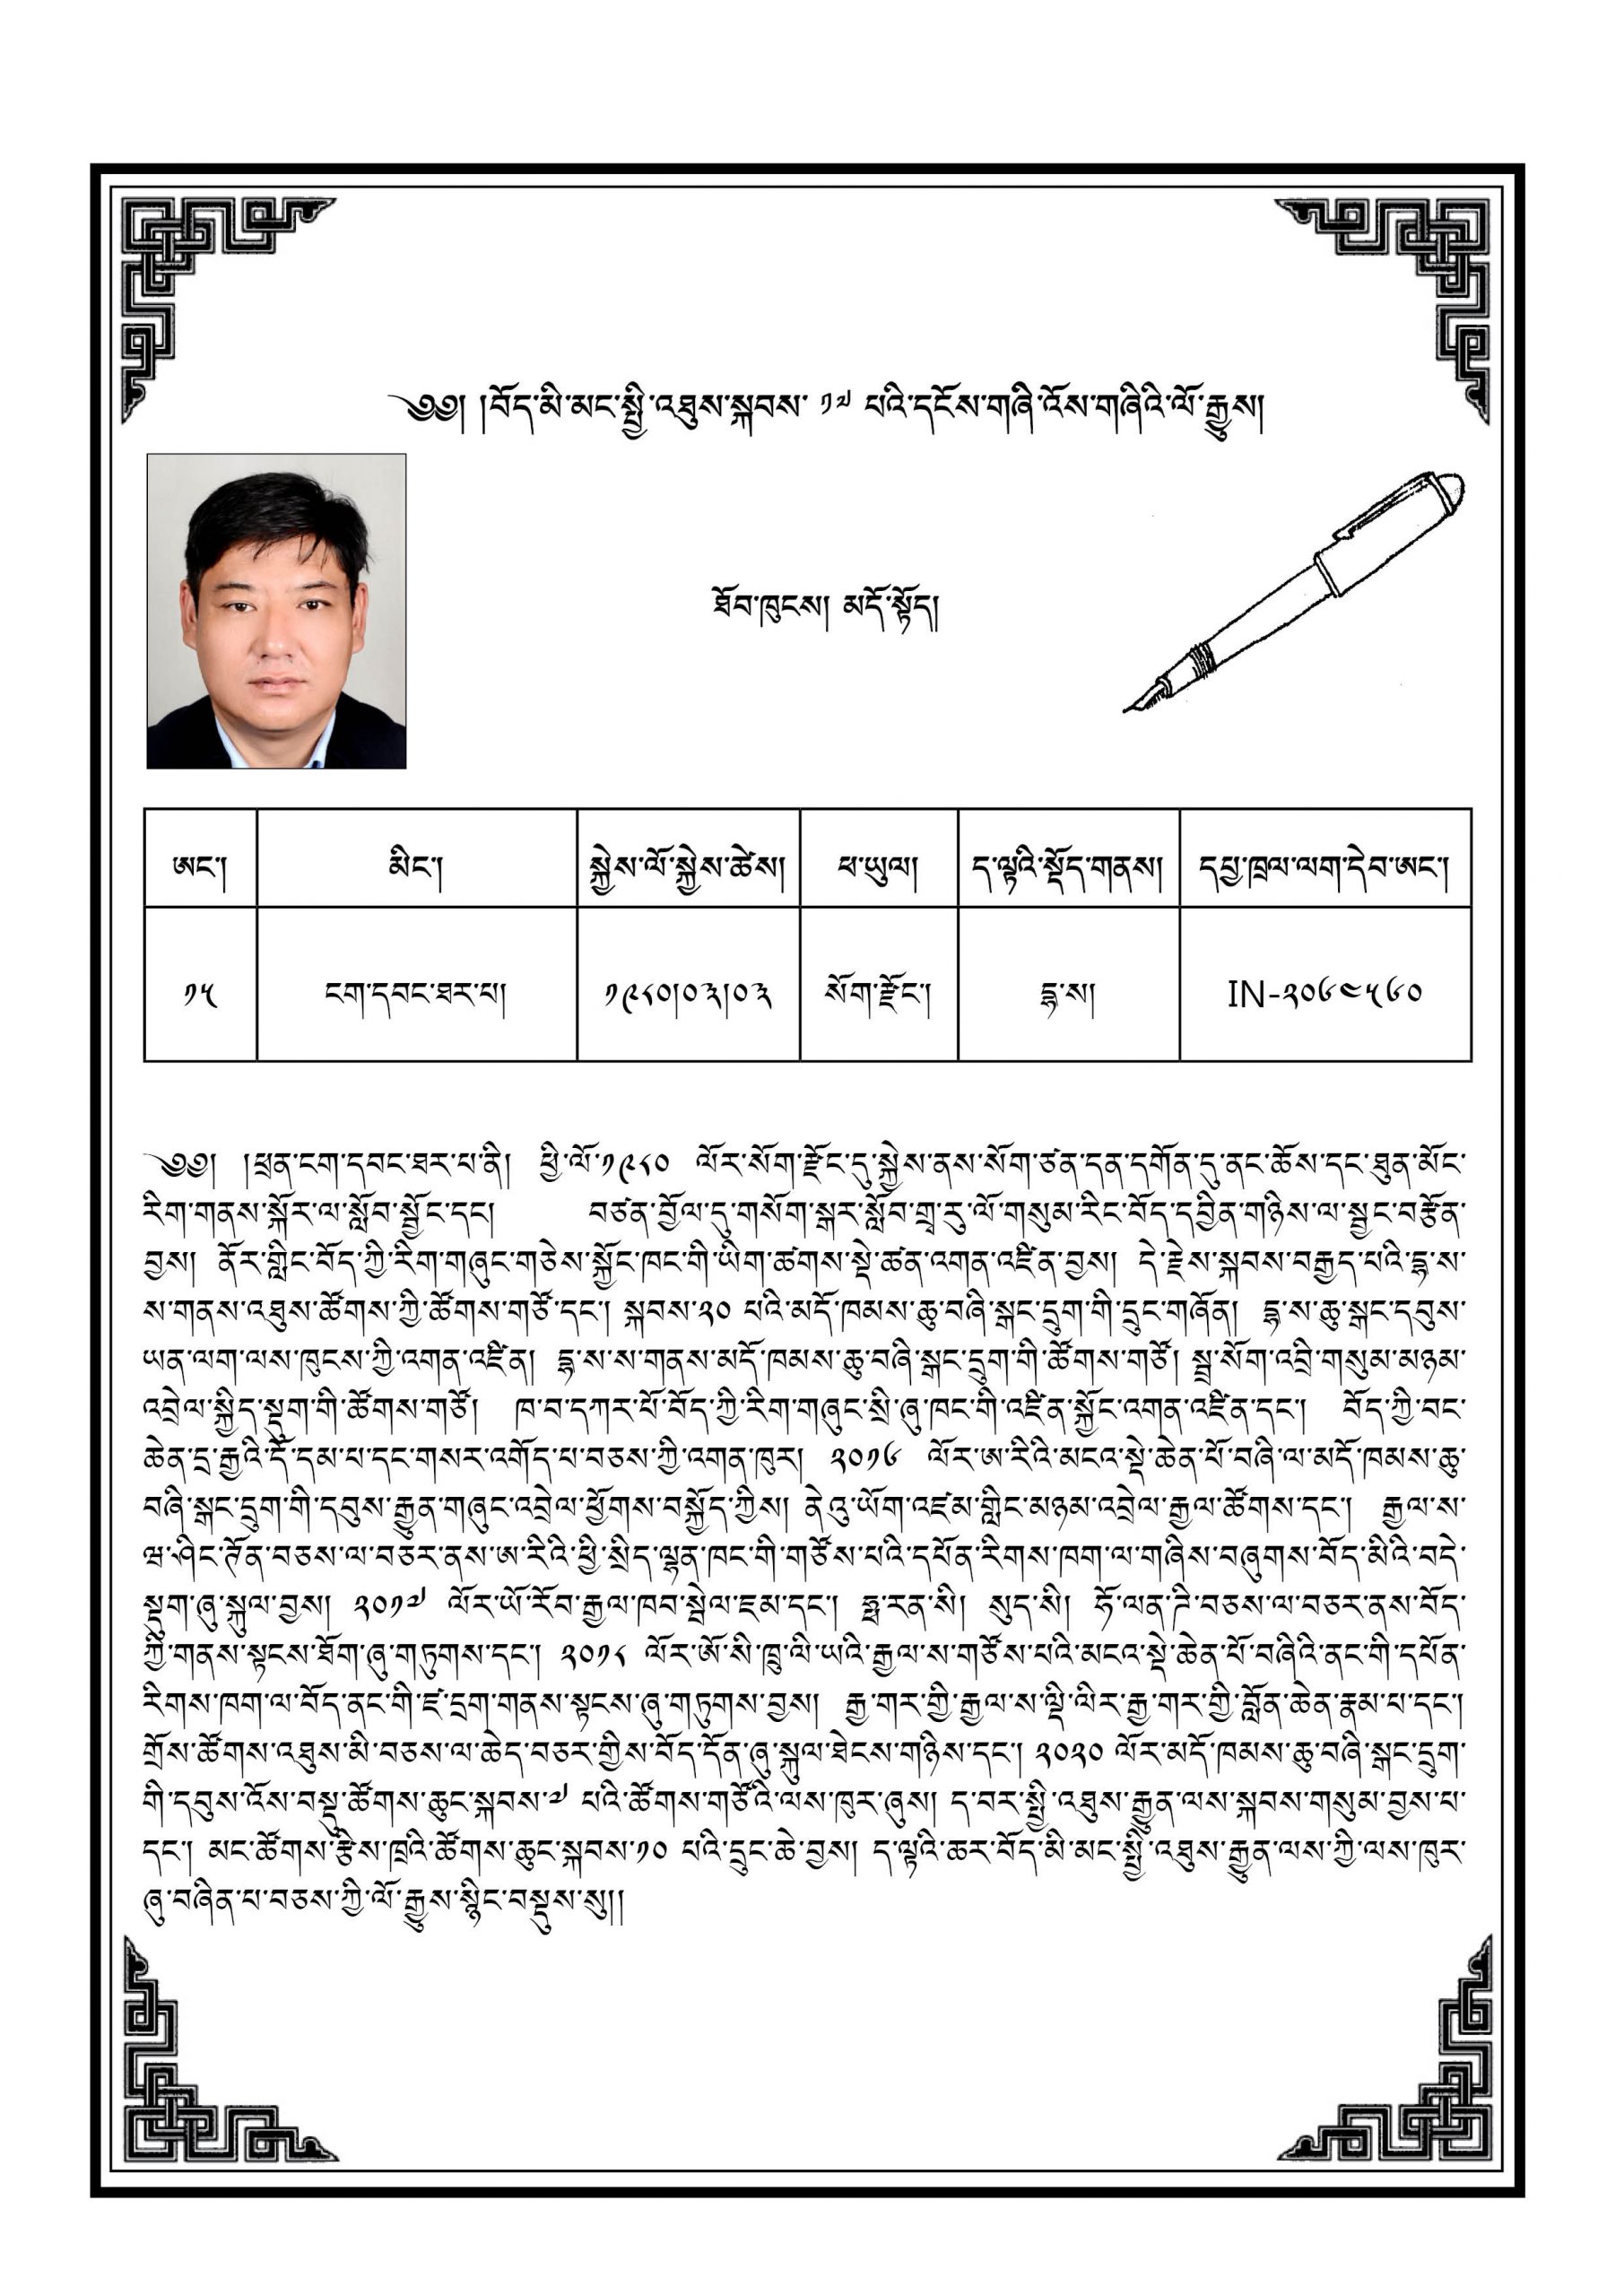 ༄༅། །བོད་མི་མང་སྤྱི་འཐུས་སྐབས་ ༡༧ པའི་དངོས་གཞི་འོས་གཞིའི་ལོ་རྒྱུས།
ཐོབ་ཁུངས། མདོ་སྟོད།
ཨང་། མིང་། སྐྱེས་ལོ་སྐྱེས་ཚེས། ཕ་ཡུལ། ད་ལྟའི་སྡོད་གནས། དཔྱ་ཁྲལ་ལག་དེབ་ཨང་།
༡༥ ངག་དབང་ཐར་པ། ༡༩༨༠།༠༣།༠༣ སོག་རྫོང་། དྷ་ས། IN-༢༠༦༤༥༦༠
༄༅། །ཕྲན་ངག་དབང་ཐར་པ་ནི། ཕྱི་ལོ་༡༩༨༠ ལོར་སོག་རྫོང་དུ་སྐྱེས་ནས་སོག་ཙན་དན་དགོན་དུ་ནང་ཆོས་དང་ཐུན་མོང་
རིག་གནས་སྐོར་ལ་སློབ་སྦྱོང་དང། བཙན་བྱོལ་དུ་གསོག་སྒར་སློབ་གྲྭ་རུ་ལོ་གསུམ་རིང་བོད་དབྱིན་གཉིས་ལ་སྦྱང་བརྩོན་
བྱས། ནོར་གླིང་བོད་ཀྱི་རིག་གཞུང་གཅེས་སྐྱོང་ཁང་གི་ཡིག་ཚགས་སྡེ་ཚན་འགན་འཛིན་བྱས། དེ་རྗེས་སྐབས་བརྒྱད་པའི་དྷ་ས་
ས་གནས་འཐུས་ཚོགས་ཀྱི་ཚོགས་གཙོ་དང་། སྐབས་༢༠ པའི་མདོ་ཁམས་ཆུ་བཞི་སྒང་དྲུག་གི་དྲུང་གཞོན། དྷ་ས་ཆུ་སྒང་དབུས་
ཡན་ལག་ལས་ཁུངས་ཀྱི་འགན་འཛིན། དྷ་ས་ས་གནས་མདོ་ཁམས་ཆུ་བཞི་སྒང་དྲུག་གི་ཚོགས་གཙོ། སྦྲ་སོག་འབྲི་གསུམ་མཉམ་
འབྲེལ་སྐྱིད་སྡུག་གི་ཚོགས་གཙོ། ཁ་བ་དཀར་པོ་བོད་ཀྱི་རིག་གཞུང་སྲི་ཞུ་ཁང་གི་འཛིན་སྐྱོང་འགན་འཛིན་དང་། བོད་ཀྱི་བང་
ཆེན་དྲ་རྒྱའི་དོ་དམ་པ་དང་གསར་འགོད་པ་བཅས་ཀྱི་འགན་ཁུར། ༢༠༡༦ ལོར་ཨ་རིའི་མངའ་སྡེ་ཆེན་པོ་བཞི་ལ་མདོ་ཁམས་ཆུ་
བཞི་སྒང་དྲུག་གི་དབུས་རྒྱུན་གཞུང་འབྲེལ་ཕྱོགས་བསྐྱོད་ཀྱིས། ནེའུ་ཡོག་འཛམ་གླིང་མཉམ་འབྲེལ་རྒྱལ་ཚོགས་དང་། རྒྱལ་ས་
ཝ་ཤིང་ཊོན་བཅས་ལ་བཅར་ནས་ཨ་རིའི་ཕྱི་སྲིད་ལྷན་ཁང་གི་གཙོས་པའི་དཔོན་རིགས་ཁག་ལ་གཞིས་བཞུགས་བོད་མིའི་བདེ་
སྡུག་ཞུ་སྐུལ་བྱས། ༢༠༡༧ ལོར་ཡོ་རོབ་རྒྱལ་ཁབ་སྦེལ་ཇམ་དང་། ཧྥ་རན་སི། སུད་སི། ཧོ་ལན་ཌི་བཅས་ལ་བཅར་ནས་བོད་
ཀྱི་གནས་སྟངས་ཐོག་ཞུ་གཏུགས་དང་། ༢༠༡༨ ལོར་ཨོ་སི་ཁྲུ་ལི་ཡའི་རྒྱལ་ས་གཙོས་པའི་མངའ་སྡེ་ཆེན་པོ་བཞིའི་ནང་གི་དཔོན་
རིགས་ཁག་ལ་བོད་ནང་གི་ཛ་དྲག་གནས་སྟངས་ཞུ་གཏུགས་བྱས། རྒྱ་གར་གྱི་རྒྱལ་ས་ལྡི་ལིར་རྒྱ་གར་གྱི་བློན་ཆེན་རྣམ་པ་དང་།
གྲོས་ཚོགས་འཐུས་མི་བཅས་ལ་ཆེད་བཅར་གྱིས་བོད་དོན་ཞུ་སྐུལ་ཐེངས་གཉིས་དང་། ༢༠༢༠ ལོར་མདོ་ཁམས་ཆུ་བཞི་སྒང་དྲུག་
གི་དབུས་འོས་བསྡུ་ཚོགས་ཆུང་སྐབས་༧ པའི་ཚོགས་གཙོའི་ལས་ཁུར་ཞུས། ད་བར་སྤྱི་འཐུས་རྒྱུན་ལས་སྐབས་གསུམ་བྱས་པ་
དང་། མང་ཚོགས་རྩིས་ཁྲའི་ཚོགས་ཆུང་སྐབས་༡༠ པའི་དྲུང་ཆེ་བྱས། ད་ལྟའི་ཆར་བོད་མི་མང་སྤྱི་འཐུས་རྒྱུན་ལས་ཀྱི་ལས་ཁུར་
ཞུ་བཞིན་པ་བཅས་ཀྱི་ལོ་རྒྱུས་སྙིང་བསྡུས་སུ།།